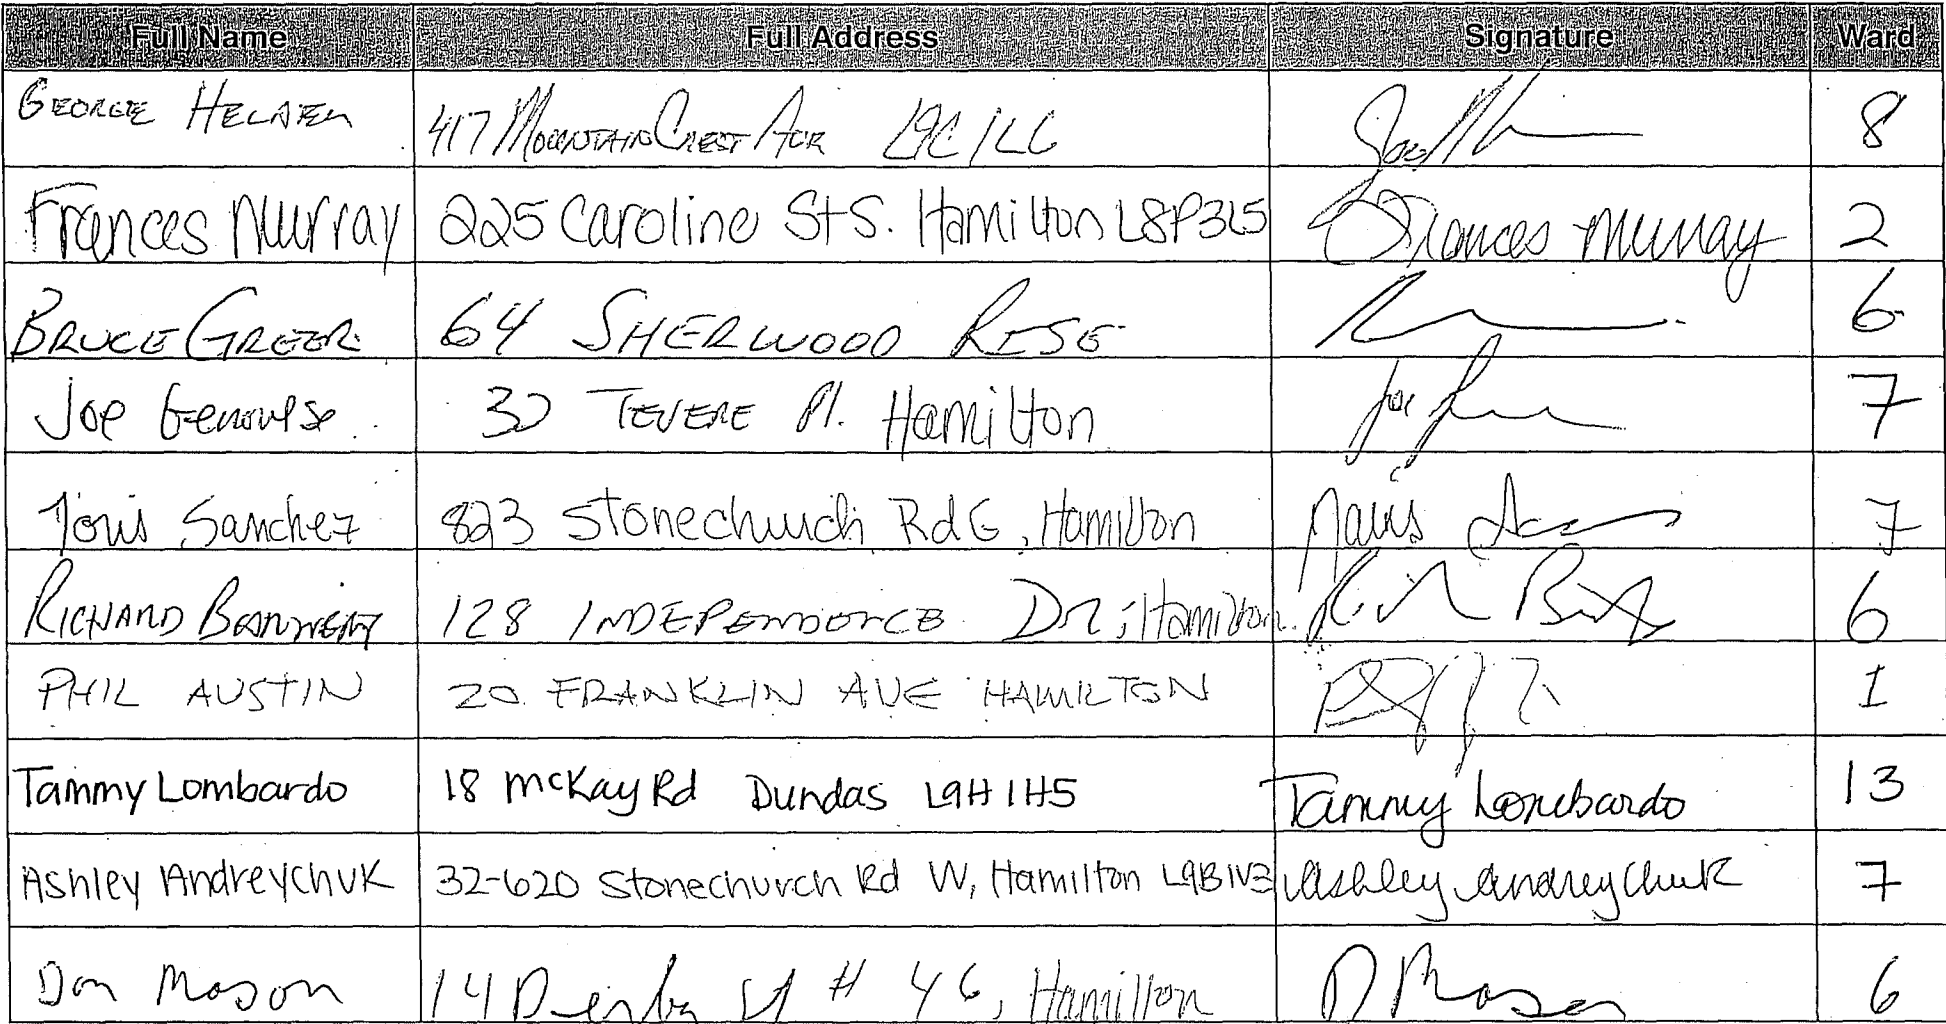 Full Name Full Address Signature Ward
GEORGE 417 MOUNTAIN CREST AVE L9C 1L6 8
Frances Murray 225 Caroline St S. Hamilton L8P3L5 Frances Murray 2
BRUCE GREER 64 SHERWOOD RISE 6
Joe Genovese 32 TEVERE Pl. Hamilton Joe 7
Sanchez 823 Stonechurch Rd E, Hamilton 7
RICHARD 128 INDEPENDENCE DR, Hamilton 6
PHIL AUSTIN 20 FRANKLIN AVE HAMILTON 1
Tammy Lombardo 18 McKay Rd Dundas L9H 1H5 Tammy Lombardo 13
Ashley Andreychuk 32-620 Stonechurch Rd W, Hamilton L9B1V3 Ashley Andreychuk 7
Don Mason 14 Derby St # 46, Hamilton D Mason 6